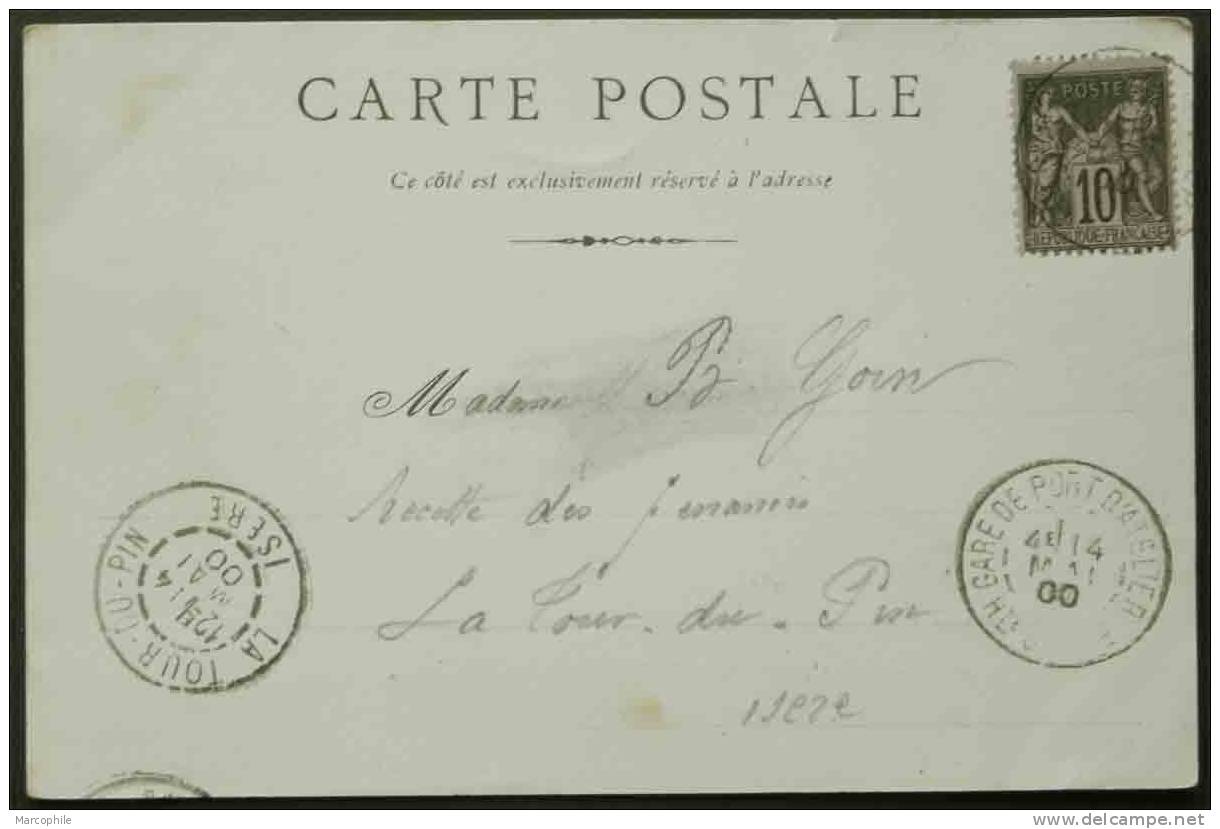 CARTE POSTALE
Ce côté est exclusivement réservé à l'adresse
POSTE
10
REPUBLIQUE FRANÇAISE
Madame Goin
Recette des
La Tour-du-Pin
Isère
LA TOUR-DU-PIN
12E 14
MAI
00
ISERE
GARE DE PORT D'ATELIER
4E 14
MAI
00
Marcophile
www.delcampe.net